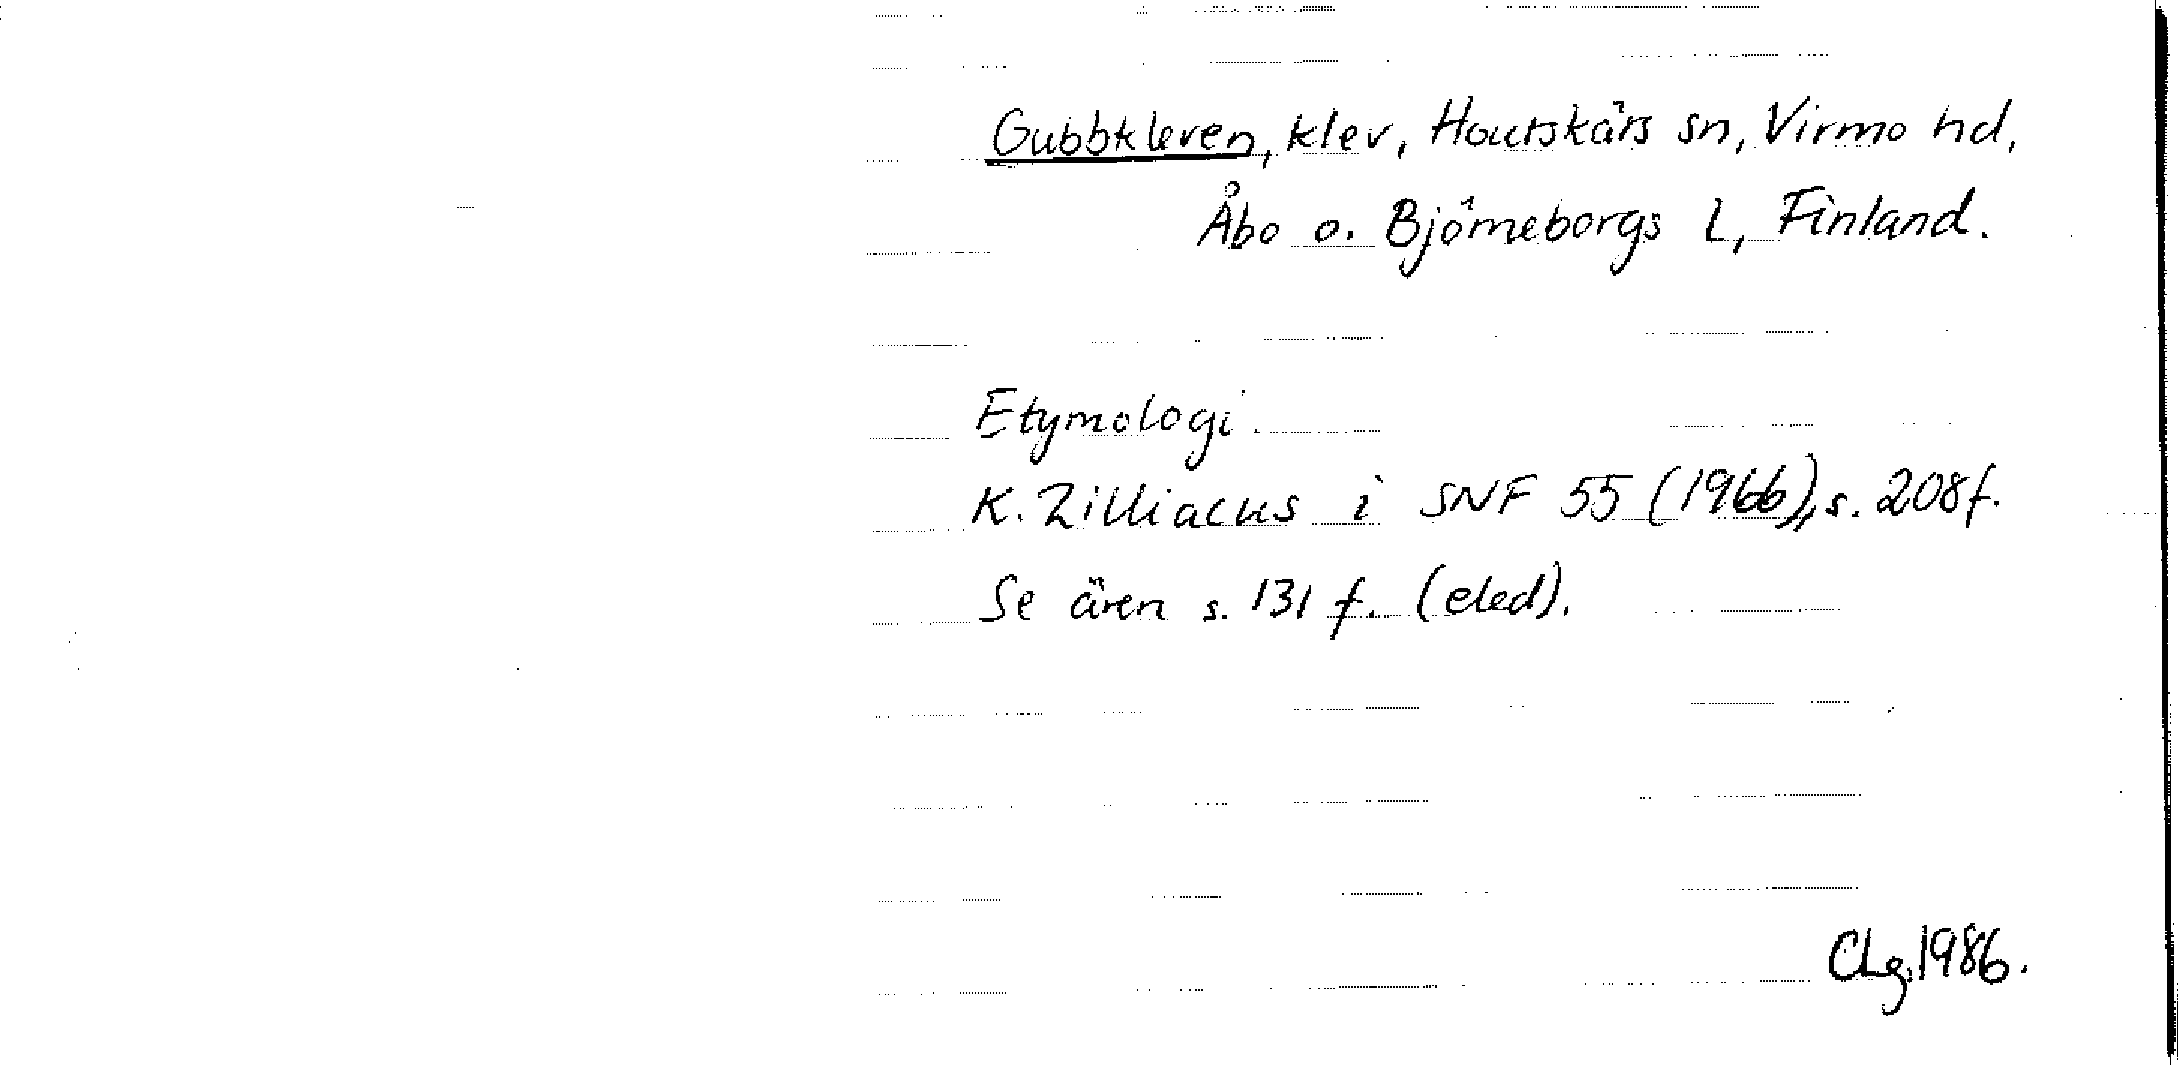 Gubbkleven, klev, Houtskärs sn, Virmo hd,
Åbo o. Björneborgs l, Finland.
Etymologi.
K. Zilliacus i SNF 55 (1966), s. 208f.
Se även s. 131 f. (eled).
CLg. 1986.